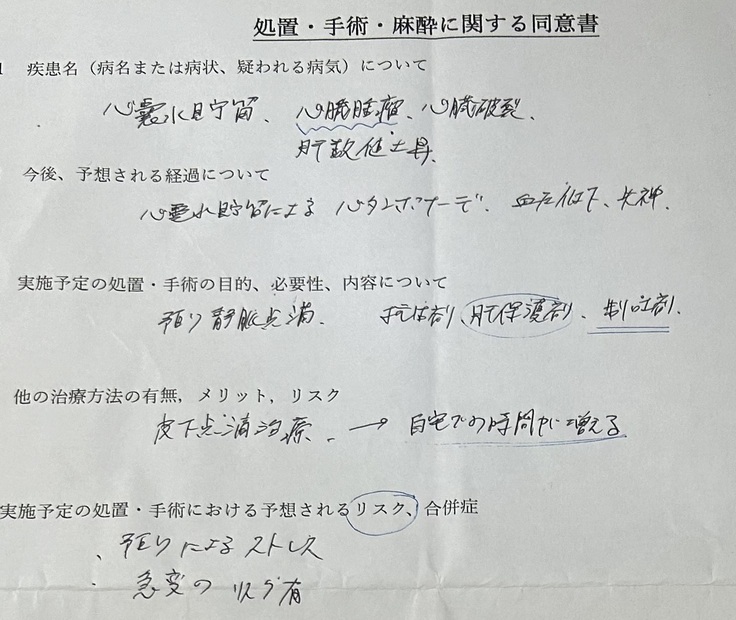 処置・手術・麻酔に関する同意書
1 疾患名（病名または病状、疑われる病気）について
心嚢水貯留、心臓腫瘤、心臓破裂、
肝数値上昇、
今後、予想される経過について
心嚢水貯留による 心タンポナーデ、血圧低下、失神、
実施予定の処置・手術の目的、必要性、内容について
預り 静脈点滴、 抗体剤、肝保護剤、制吐剤、
他の治療方法の有無，メリット，リスク
皮下点滴治療、→ 自宅での時間が増える
実施予定の処置・手術における予想されるリスク、合併症
、預りによるストレス
・急変のリスク有